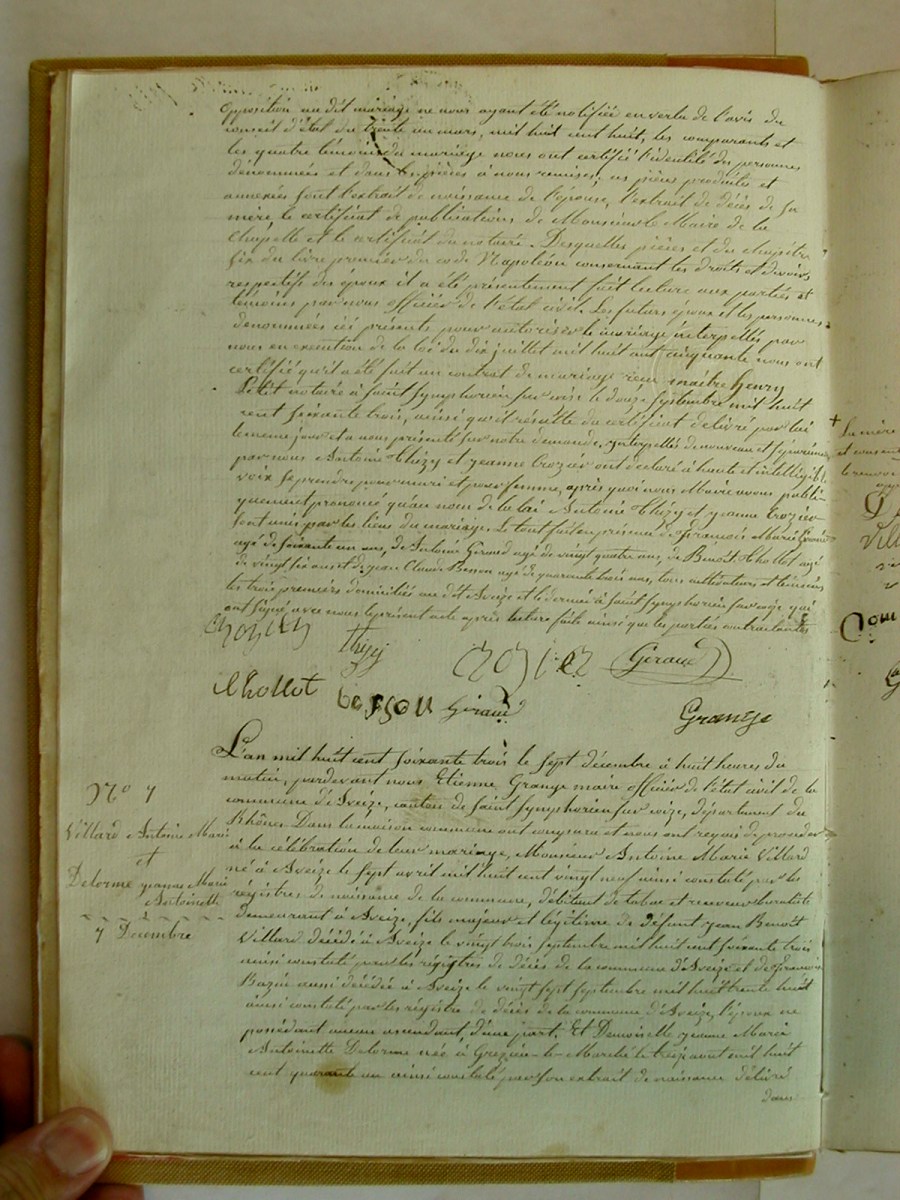 opposition au dit mariage ne nous ayant été notifiée en vertu de l'avis du
conseil d'état du trente un mars, mil huit cent huit, les comparants et
les quatre témoins du mariage nous ont certifié l'identité des personnes
dénommées et dans les pièces à nous remises; ces pièces produites et
annexées sont l'extrait de naissance de l'épouse, l'extrait de décès de sa
mère, le certificat de publications de Monsieur le Maire de la
Chapelle et le certificat du notaire. Desquelles pièces et du chapitre
six du livre premier du code Napoléon concernant les droits et devoirs
respectifs des époux il a été présentement fait lecture aux parties et
témoins par nous officier de l'état civil. Les futurs époux et les personnes
dénommées ici présents pour autoriser le mariage interpellés par
nous en exécution de la loi du dix juillet mil huit cent cinquante nous ont
certifié qu'il a été fait un contrat de mariage reçu maître henry
notaire à Saint Symphorien sur coise le douze Septembre mil huit
cent soixante trois, ainsi qu'il résulte du certificat délivré par lui
le même jour et a nous présenté sur notre demande. Interpellés de nouveau et séparément
par nous Antoine Thizy et jeanne Crozier ont déclaré à haute et intelligible
voix se prendre pour mari et pour femme, après quoi nous Maire avons publi-
quement prononcé qu'au nom de la loi Antoine Thizy et jeanne Crozier
sont unis par les liens du mariage. Le tout fait en présence de francois Marie
agé de soixante un ans, de Antoine agé de vingt quatre ans, de Benoît Chollot agé
de vingt six ans et de jean Claude Besson agé de quarante trois ans, tous cultivateurs et témoins
les trois premiers domiciliés au dit Aveize et le dernier à Saint Symphorien sur coize qui
ont signé avec nous le présent acte après lecture faite ainsi que les parties contractantes
Thizy crozier Geraud
Chollot besson Giraud Grange
L'an mil huit cent soixante trois le sept décembre à huit heures du
matin, pardevant nous Etienne Grange maire officier de l'état civil de la
commune d'Aveize, canton de Saint Symphorien sur coize, département du
Rhône. Dans la maison commune ont comparu et nous ont requis de procéder
à la célébration de leur mariage, Monsieur Antoine Marie Villard
né à Aveize le sept avril mil huit cent vingt neuf ainsi constaté par les
régistres de naissance de la commune, débitant de tabac et receveur buraliste
demeurant à Aveize, fils majeur et légitime de défunt jean Benoît
Villard décédé à Aveize le vingt trois septembre mil huit cent soixante trois
ainsi constaté par les régistres de décès de la commune d'Aveize et de
Bazin aussi décédée à Aveize le vingt sept septembre mil huit trente huit
ainsi constaté par les régistre de décès de la commune d'Aveize, l'époux ne
possédant aucun ascendant, d'une part. Et Demoiselle jeanne Marie
Antoinette Delorme née à Grézieu-le-Marché le treize aout mil huit
cent quarante un ainsi constaté par son extrait de naissance délivré
dans
No 7
Villard Antoine Marie
et
Delorme jeanne Marie
Antoinette
7 Décembre
La mère